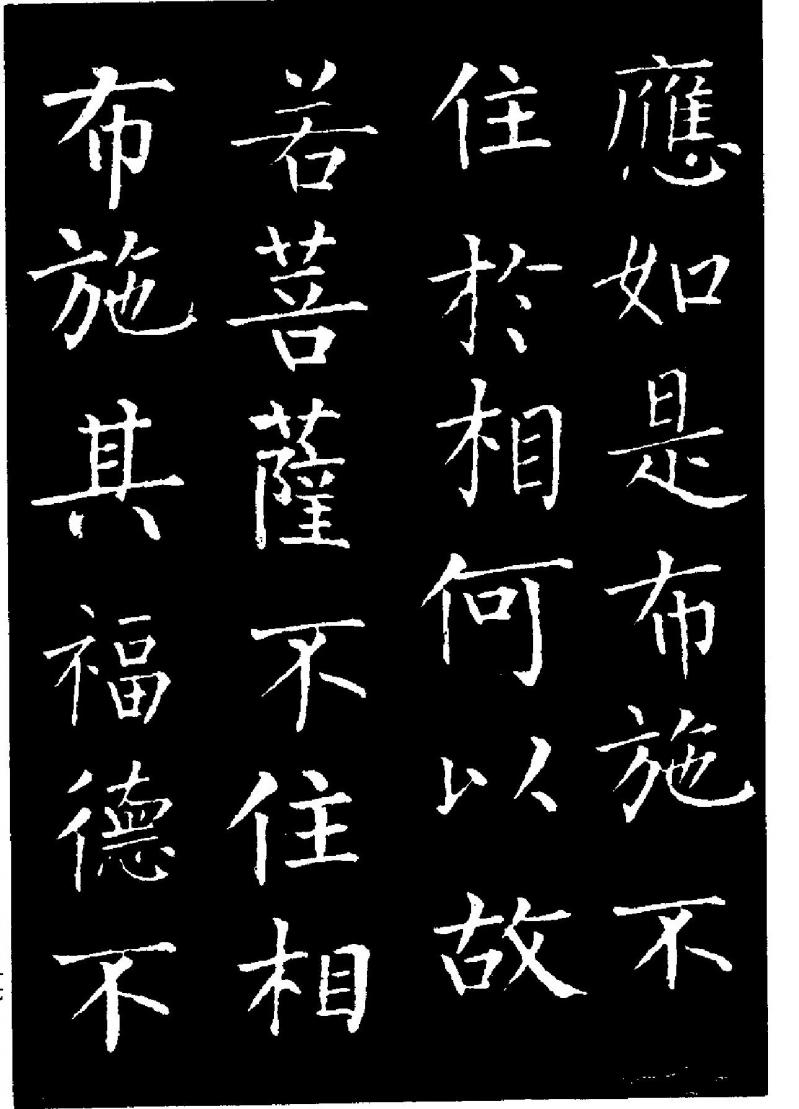 應如是布施不
住於相何以故
若菩薩不住相
布施其福德不